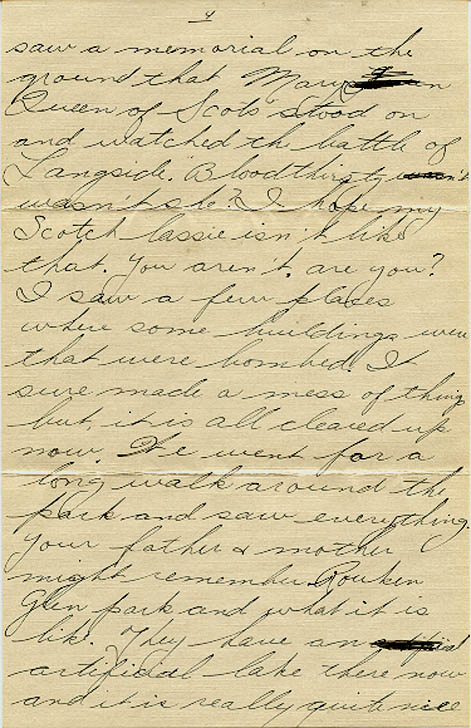 4
saw a memorial on the
ground that Mary
Queen of Scots stood on
and watched th battle of
Langside. Bloodthirsty
wasn't she? I hope my
Scotch lassie isn't like
that. You aren't, are you?
I saw a few places
where some buildings were
that were bombed. It
sure made a mess of things
but it is all cleared up
now. We went for a
long walk around the
park and saw everything.
Your father & mother
might remember Rouken
Glen park and what it is
like. They have an
artificial lake there now
and it is really quite nice